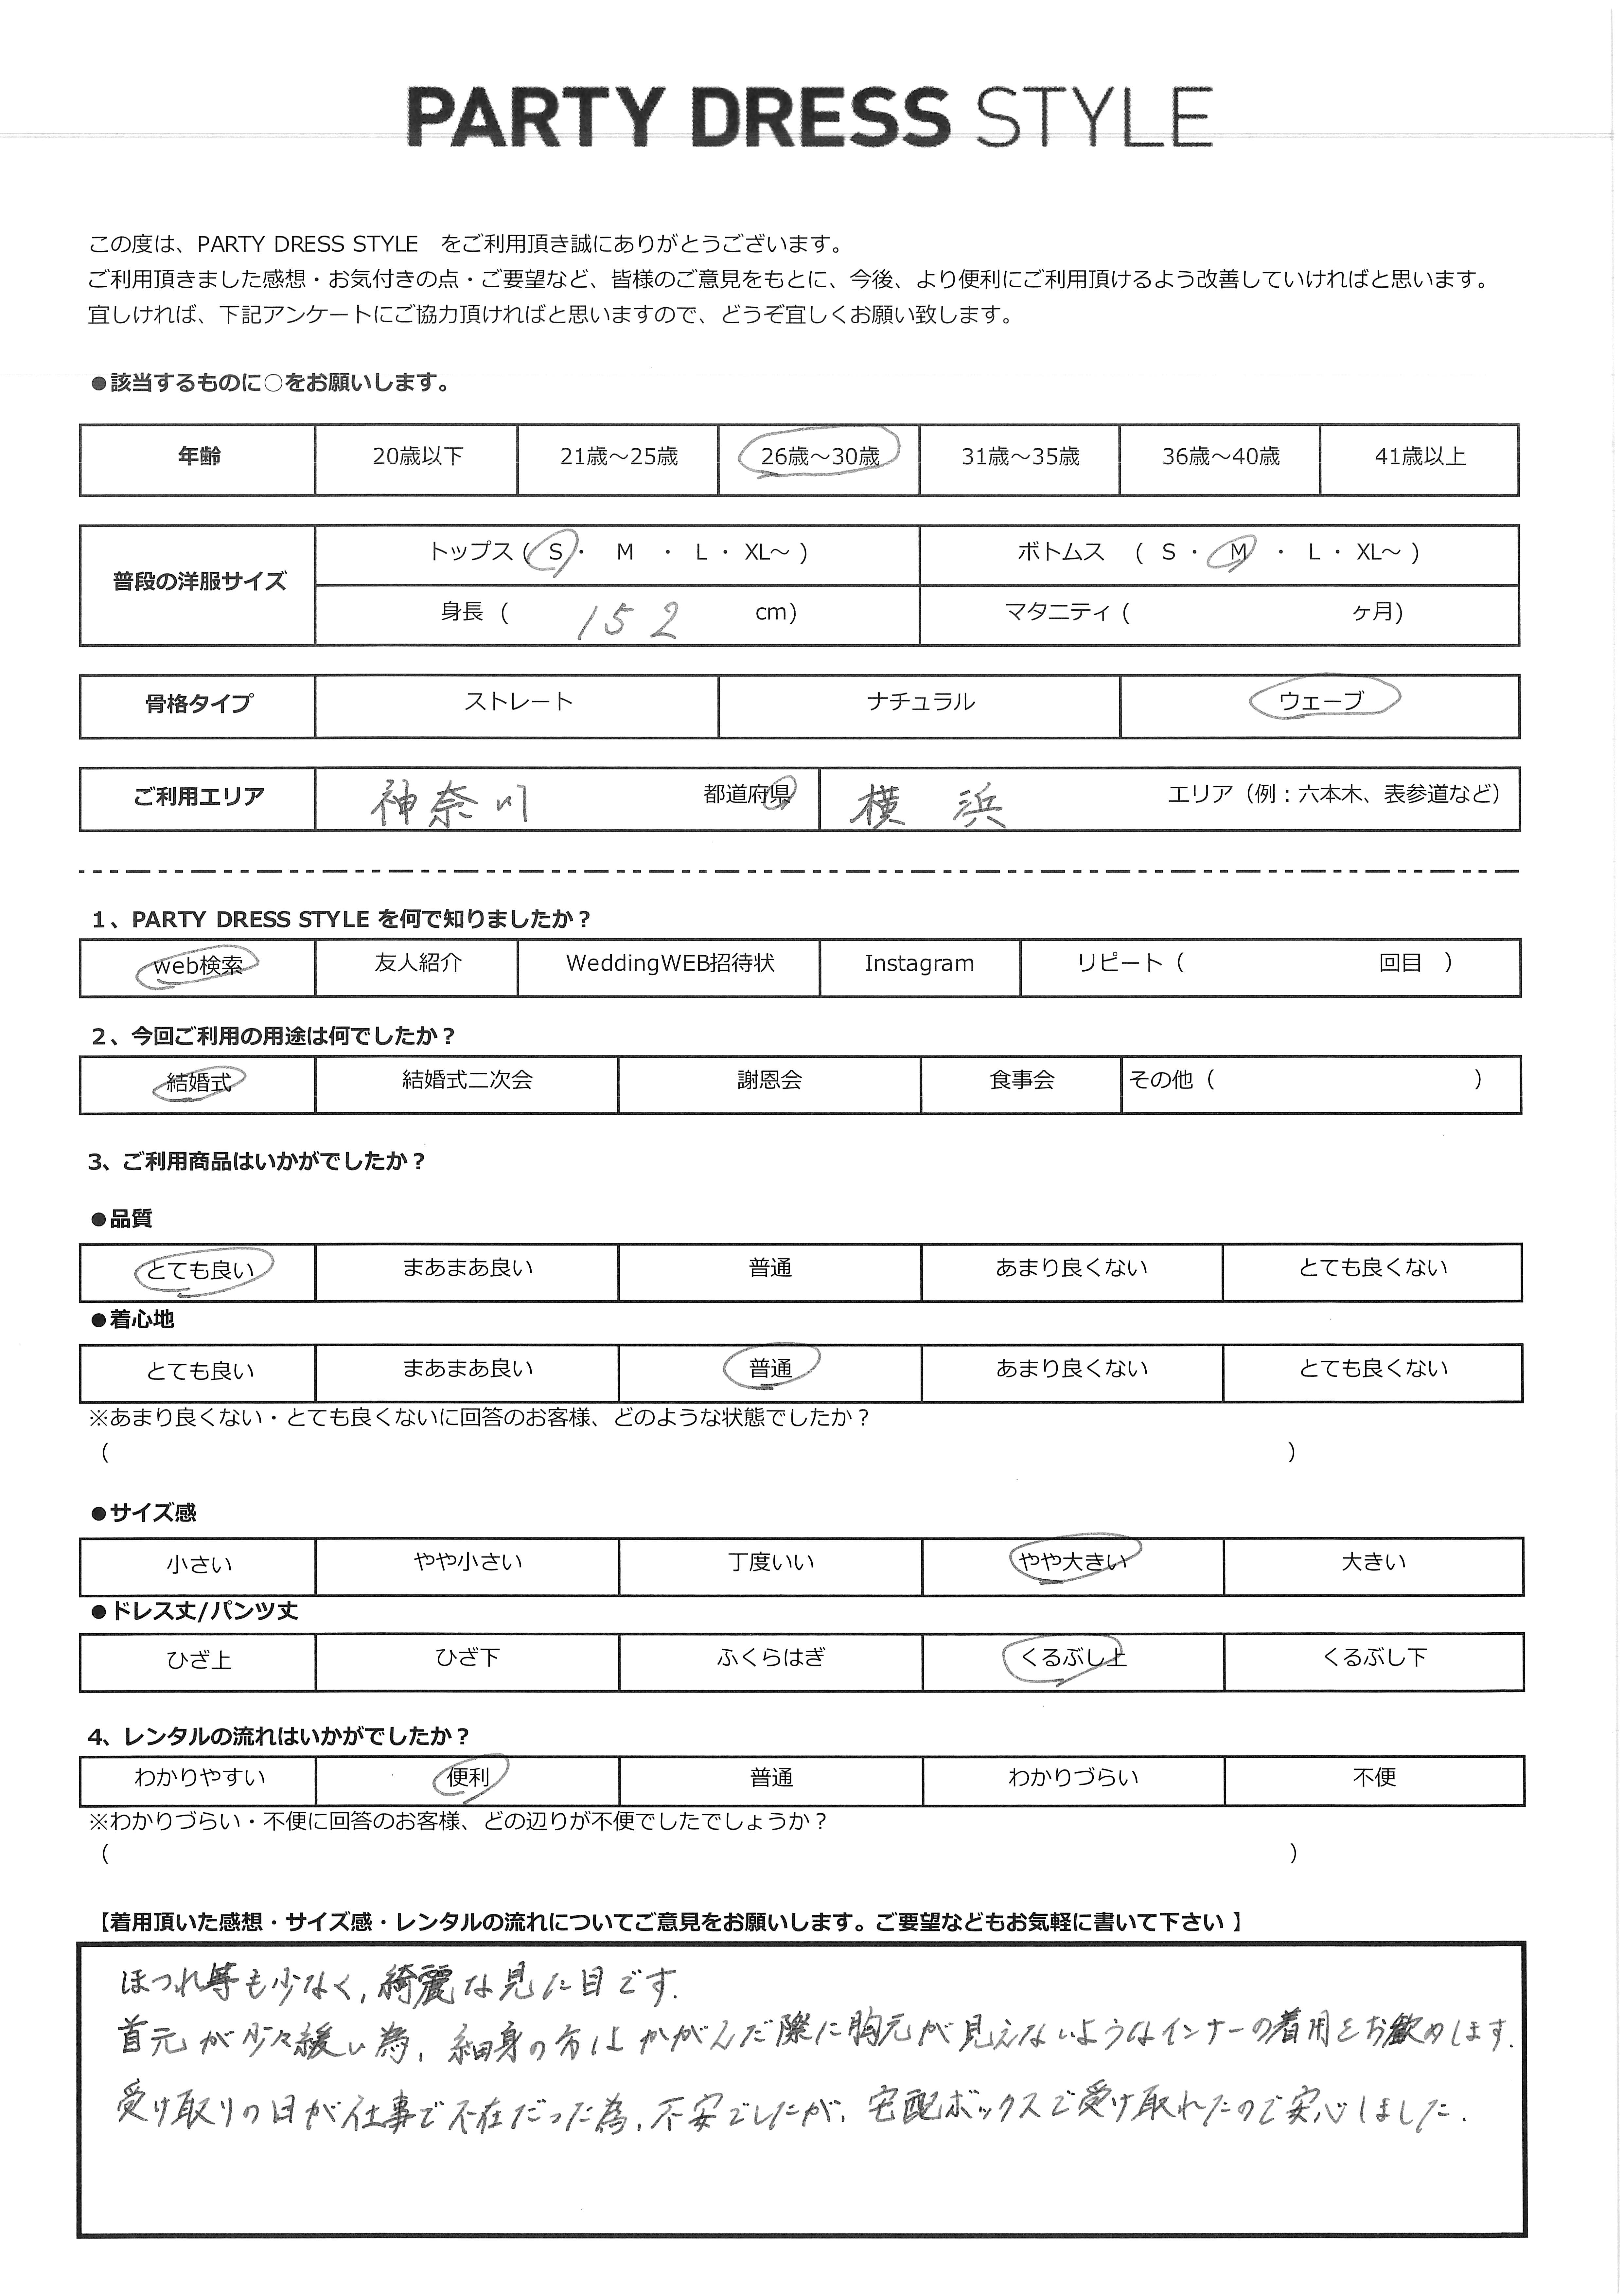 PARTY DRESS STYLE
この度は、PARTY DRESS STYLE　をご利用頂き誠にありがとうございます。
ご利用頂きました感想・お気付きの点・ご要望など、皆様のご意見をもとに、今後、より便利にご利用頂けるよう改善していければと思います。
宜しければ、下記アンケートにご協力頂ければと思いますので、どうぞ宜しくお願い致します。
●該当するものに○をお願いします。
年齢 20歳以下 21歳～25歳 26歳～30歳 31歳～35歳 36歳～40歳 41歳以上
普段の洋服サイズ トップス ( S ・ M ・ L ・ XL～ ) ボトムス ( S ・ M ・ L ・ XL～ )
身長 ( 152 cm) マタニティ ( ヶ月)
骨格タイプ ストレート ナチュラル ウェーブ
ご利用エリア 神奈川 都道府県 横浜 エリア（例：六本木、表参道など）
1、PARTY DRESS STYLE を何で知りましたか？
web検索 友人紹介 WeddingWEB招待状 Instagram リピート（ 回目 ）
2、今回ご利用の用途は何でしたか？
結婚式 結婚式二次会 謝恩会 食事会 その他（ ）
3、ご利用商品はいかがでしたか？
●品質
とても良い まあまあ良い 普通 あまり良くない とても良くない
●着心地
とても良い まあまあ良い 普通 あまり良くない とても良くない
※あまり良くない・とても良くないに回答のお客様、どのような状態でしたか？
（ ）
●サイズ感
小さい やや小さい 丁度いい やや大きい 大きい
●ドレス丈/パンツ丈
ひざ上 ひざ下 ふくらはぎ くるぶし上 くるぶし下
4、レンタルの流れはいかがでしたか？
わかりやすい 便利 普通 わかりづらい 不便
※わかりづらい・不便に回答のお客様、どの辺りが不便でしたでしょうか？
（ ）
【着用頂いた感想・サイズ感・レンタルの流れについてご意見をお願いします。ご要望などもお気軽に書いて下さい 】
ほつれ等も少なく,綺麗な見た目です.
首元が少々緩い為,細身の方はかがんだ際に胸元が見えないようなインナーの着用をお勧めします.
受け取りの日が仕事で不在だった為,不安でしたが,宅配ボックスで受け取れたので安心しました.